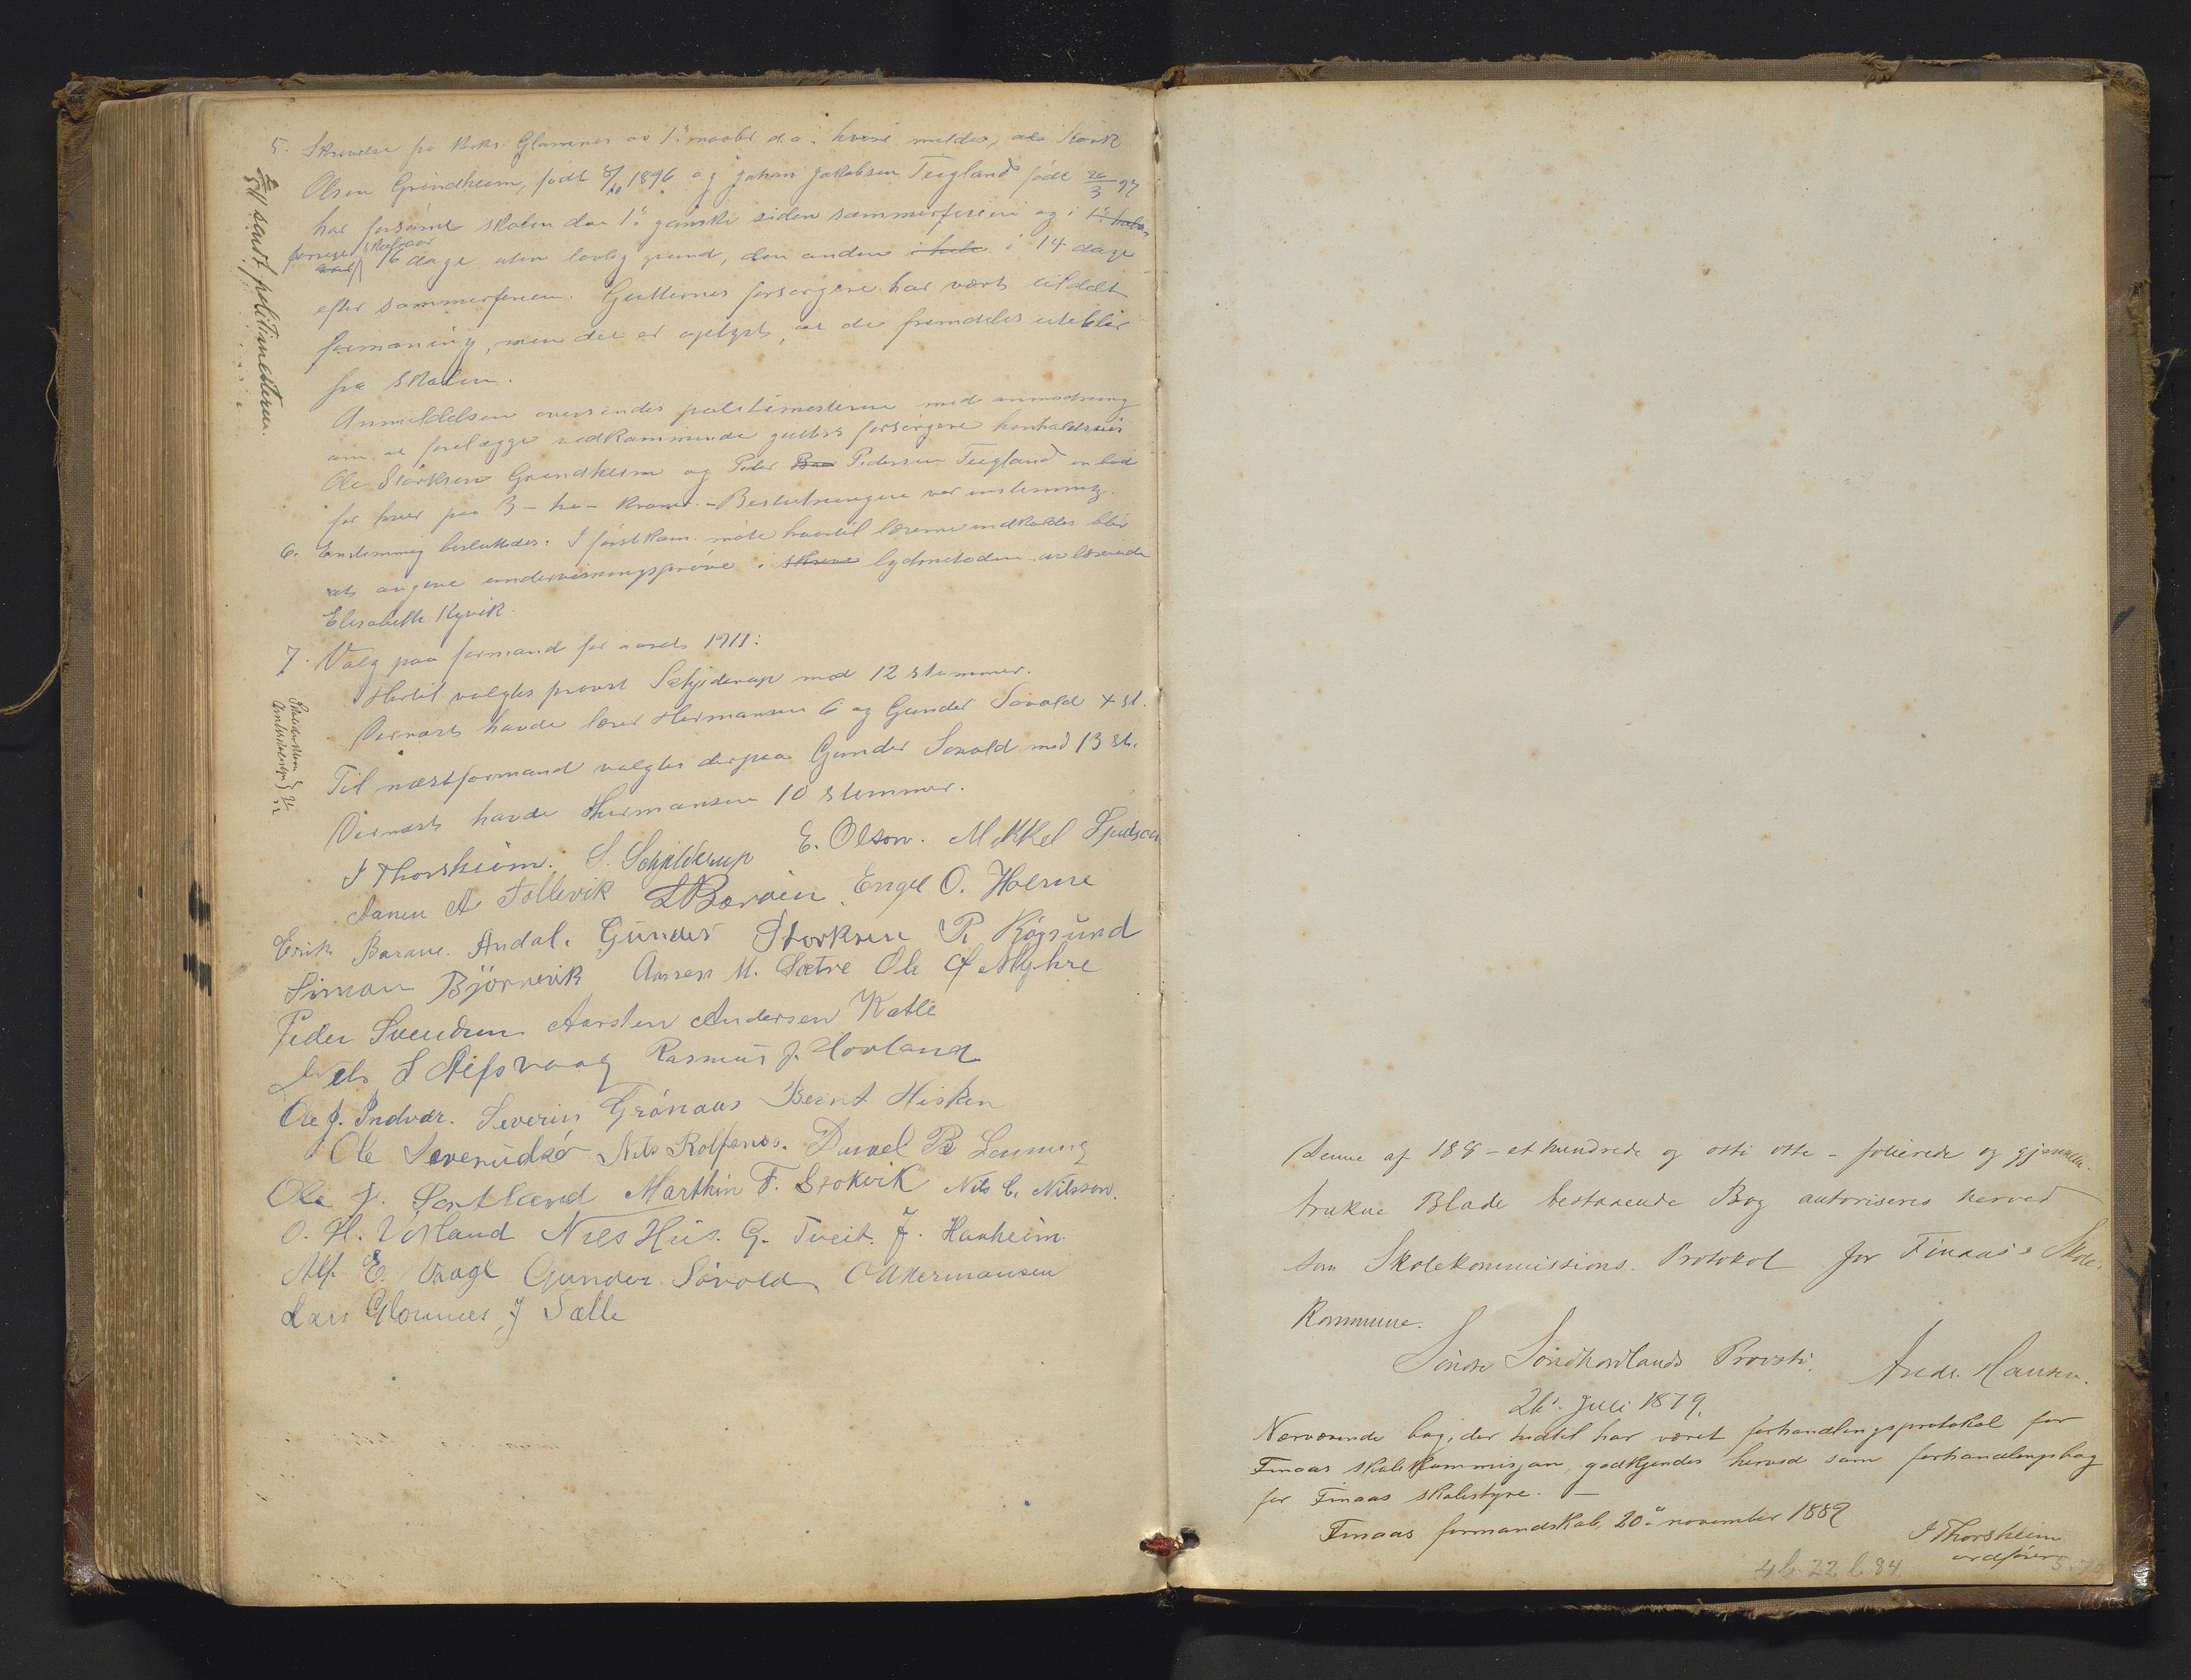 5. Skrivelse fra kirks. Glomnes av 1ste novbr d.a. hvori meldes, at Størk
Olsen Grindheim, født 8/10 1896 og Johan Jakobsen Teigland født 26/3 97
har forsømt skolen den 1ste ganske siden sommerferien og i
forrige skoleaar 16 dage uten lovlig grund, den anden i hele i 14 dage
efter sommerferien. Gutternes forsørgere har vært tildelt
formaning, men det er oplyst, at de fremdeles uteblir
fra skolen.
Anmeldelsen oversendes politimesteren med anmodning
om at forelægge vedkommende gutters forsørgere henholdsvis
Ole Størksen Grindheim og Peder Pedersen Teigland en bod
for hver paa 3 - tre - kroner. - Beslutningen var enstemmig.
Utf sendt politimesteren.
6. Enstemmig besluttedes: I først kom. møte hvortil lærerne indkaldes blir
at avgive undervisningsprøve i skrive lydmetoden av lærerinde
Elisabeth Kyvik.
7. Valg paa formand for aaret 1911:
Hertil valgtes provst Schjelderup med 12 stemmer.
Dernæst havde lærer Hermansen 6 og Gunder Søvold 4 st.
Skoledirektøren
Til næstformand valgtes derpaa Gunder Søvold med 13 st.
Dernæst havde Hermansen 10 stemmer.
J Thorsheim. S. Schjelderup E. Olson. Mikkel Sjursen
Aanen A Follevik Engel O. Holme
Erik Barane. Andal. Gunder Størksen R Røgsund
Simon Bjørnevik Aanen M. Sætre Ole O Myhre
Peder Svendsen Aarsten Andersen Katle
Nels S Røfsvaag Rasmus J. Hovland
Ole J. Indvær. Severin Grönaas Bernt Hisken
Ole Nils Rolfsnes. Daniel B Lønning
Ole J. Sortland Marthin F. Stokvik Nils C. Nilsson.
O. H. Vorland Nils Hus. G. Tveit. J. Hanheim.
Alf. E. Vaage Gunder Sövold O Hermansen
Lars Glomnes J Sælle
Denne af 188 - et hundrede og otti otte - folierede og gjennem-
trukne Blade bestaaende Bog autoriseres herved
som Skolekommissions-Protokol for Finaas Skole-
Kommune.
Söndre Söndhordlands Provsti.
26. Juli 1879.
Andr. Hansen.
Nærværende bog, der hidtil har været forhandlingsprotokol for
Finaas skolekommisjon, godkjendes herved som forhandlingsbog
for Finaas skolestyre. —
Finaas formandskab, 20de november 1889
J Thorsheim
ordfører
4 b. 22 l. 84